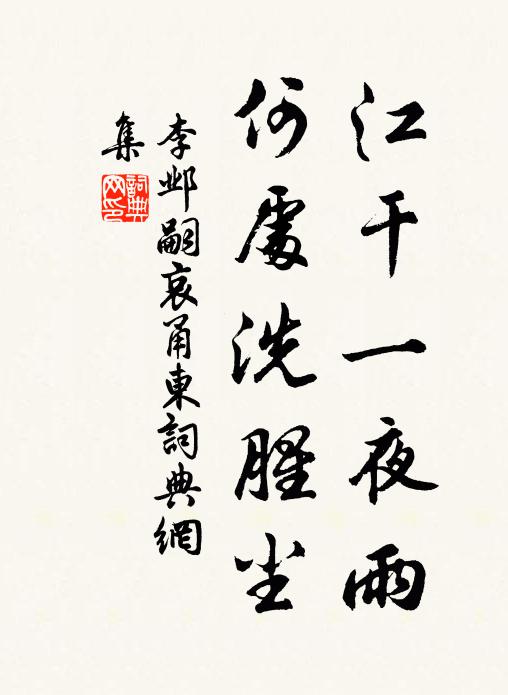 江干一夜雨
何處洗腥尘
李邺嗣哀甬東詞典網
集
詞典
网印